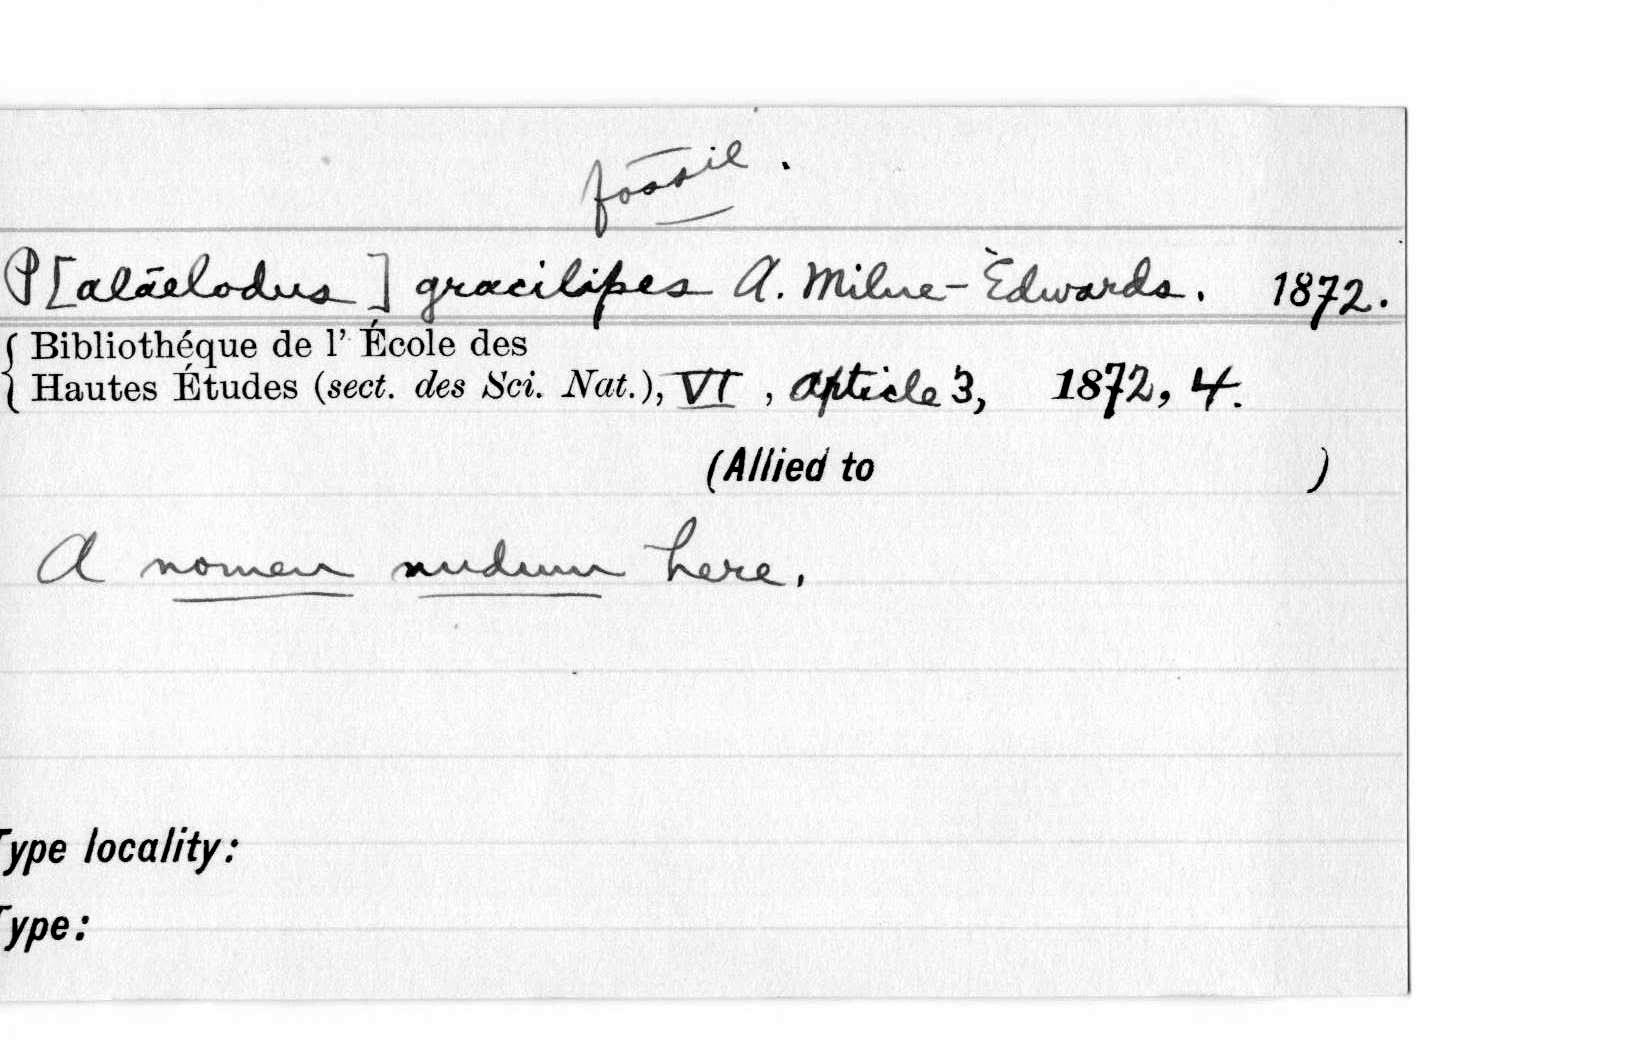 fossil.
P[alaelodus] gracilipes A. Milne-Èdwards. 1872.
{ Bibliothéque de l' École des
Hautes Études (sect. des Sci. Nat.), VI, article 3, 1872, 4.
(Allied to )
A nomen nudum here.
Type locality:
Type: